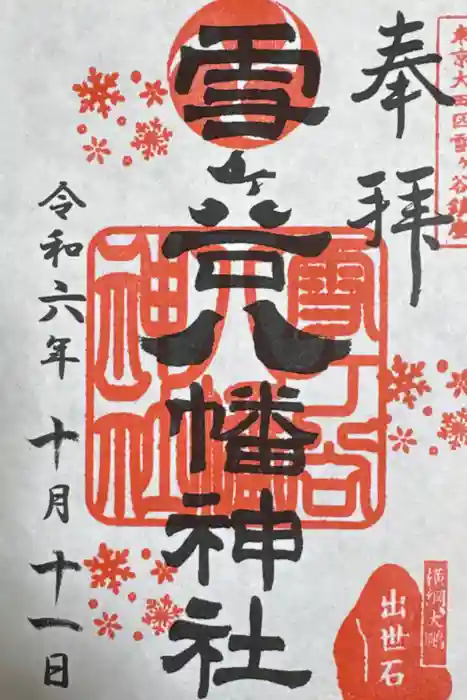 東京大田区雪ヶ谷鎮座
奉拝
雪ヶ谷八幡神社
雪ヶ谷八幡神社
令和六年 十月 十一日
横綱大鵬
出世石